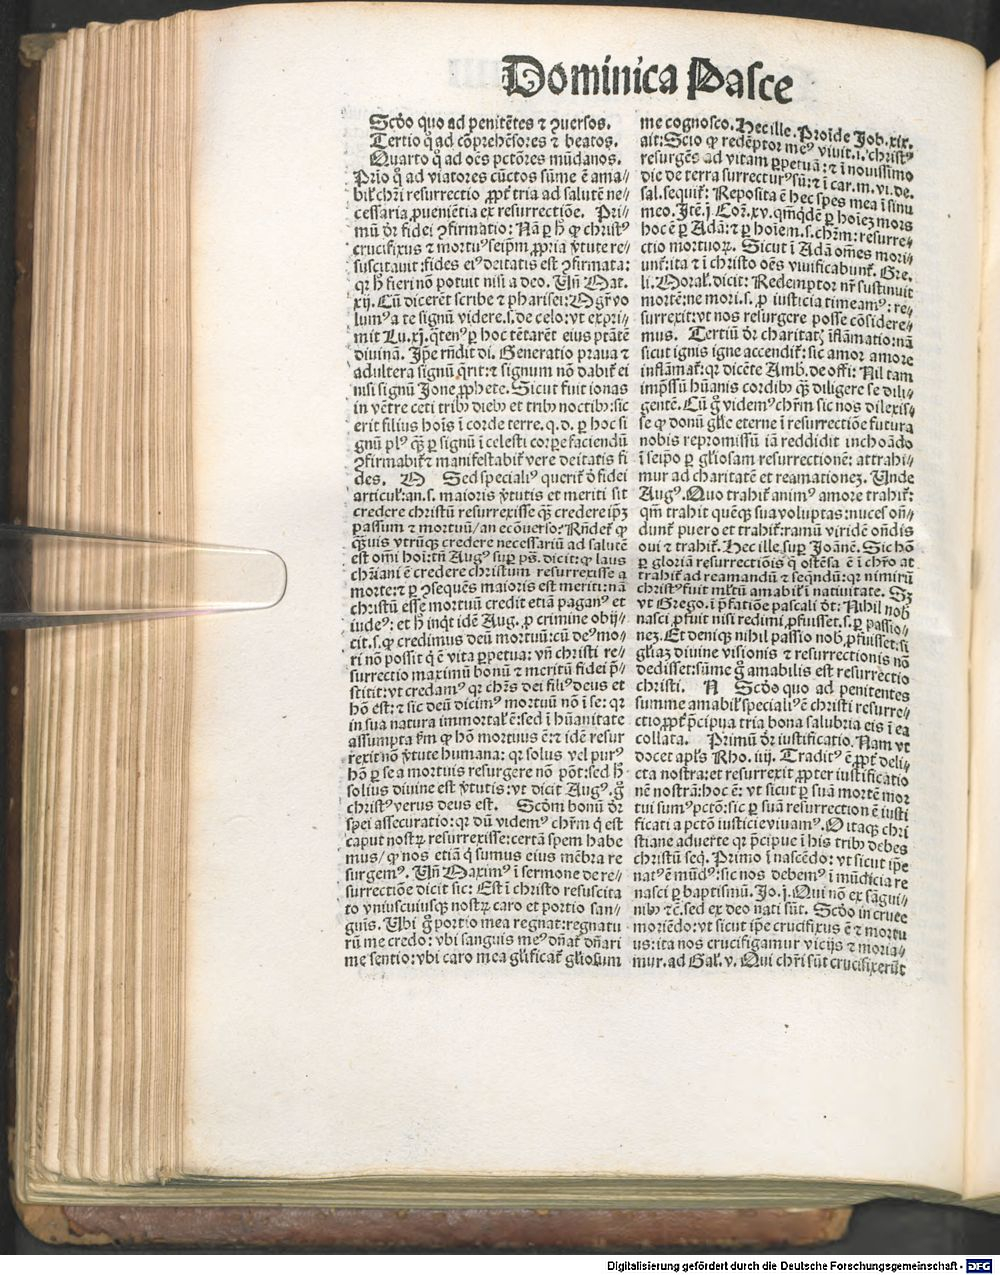 Dominica Pasce
Scďo quo ad penitētes ⁊ ꝯuersos.
Tertio q̇ ad cōprehēsores ⁊ beatos.
Quarto q̇ ad oēs pctōres mūdanos.
Prio q̇ ad viatores cūctos sūme ē ama-
bil̕ chr̄i resurrectio ꝓpt̕ tria ad salutē ne-
cessaria ꝓueniētia ex resurrectiōe. Pri-
mū ďr fidei ꝯfirmatio: Nā ꝑ h̄ ꝙ christꝰ
crucifixus ⁊ mortuꝰ seip̄m ꝓpria v̓tute re-
suscitauit: fides eiꝰ deitatis est ꝯfirmata:
qꝛ h̄ fieri nō potuit nisi a deo. Uñ Mat.
xij. Cū dicerēt scribe ⁊ pharisei: Mgr̄ vo
lumꝰ a te signū videre .s. de celo: vt expri-
mit Lu. xj. q̇tenꝰ ꝑ hoc tētarēt eius ptātē
diuinā. Ip̄e rn̄dit di. Generatio praua ⁊
adultera signū q̄rit: ⁊ signum nō dabit̕ ei
nisi signū Jone ꝓphete. Sicut fuit ionas
in vētre ceti tribꝰ diebꝰ et tribꝰ noctibꝰ: sic
erit filius hoīs ī corde terre. q. d. ꝑ hoc si
gnū plꝰ q̄ꝫ ꝑ signū ī celesti corꝑe faciendū
ꝯfirmabit̕ ⁊ manifestabit̕ vere deitatis fi
des. M Sed specialiꝰ querit̕ ď fidei
articul̕: an .s. maioris v̓tutis et meriti sit
credere christū resurrexisse q̄ꝫ credere ip̄ꝫ
passum ⁊ mortuū / an ecōuerso? Rn̄det̕ ꝙ
q̄ꝫuis vtrūqꝫ credere necessariū ad salutē
est om̄i hoī: tn̄ Augꝰ suꝑ ps. dicit: ꝙ laus
chr̄iani ē credere christum resurrexisse a
morte: ⁊ ꝑ ꝯsequēs maioris est meriti: nā
christū esse mortuū credit etiā paganꝰ et
iudeꝰ: et h̄ inqt̕ idē Aug. ꝓ crimine obij-
cit .s. ꝙ credimus deū mortuū: cū deꝰ mo-
ri nō possit q̇ ē vita ꝑpetua: vñ christi re-
surrectio maximū bonū ⁊ meritū fidei p̄-
stitit: vt credamꝰ qꝛ chr̄s dei filiꝰ deus et
hō est: ⁊ sic deū dicimꝰ mortuū nō ī se: qꝛ
in sua natura immortal̕ ē: sed ī hūanitate
assumpta km̄ ꝙ hō mortuus ē: ⁊ idē resur
rexit nō v̓tute humana: qꝛ solus vel purꝰ
hō ꝑ se a mortuis resurgere nō pōt: sed h̄
solius diuine est v̓tutis: vt dicit Augꝰ. g̊
christꝰ verus deus est. Scďm bonū ďr
spei assecuratio: qꝛ dū videmꝰ chr̄m q̇ est
caput nostꝝ resurrexisse: certā spem habe
mus / ꝙ nos etiā q̇ sumus eius mēbra re
surgemꝰ. Uñ Maximꝰ ī sermone de re-
surrectiōe dicit sic: Est ī christo resuscita
to vniuscuiusqꝫ nostꝝ caro et portio san-
guis. Ubi g̊ portio mea regnat: regnatu
rū me credo: vbi sanguis meꝰ dn̄at̕ dn̄ari
me sentio: vbi caro mea gl̕ificat̕ gl̕iosum
me cognosco. Hec ille. Proīde Job .xix.
ait: Scio ꝙ redēptor meꝰ viuit .i. christꝰ
resurgēs ad vitam ꝑpetuā: ⁊ ī nouissimo
die de terra surrecturꝰ sū: ⁊ ī car. m. vi. de.
sal. sequit̕: Reposita ē hec spes mea ī sinu
meo. Itē .j. Cor̄. xv. qm̄qdē ꝑ hoīeꝫ mors
hoc ē ꝑ Adā: ⁊ ꝑ hoīem .s. chr̄m: resurre-
ctio mortuoꝝ. Sicut ī Adā om̄es mori-
unt̕: ita ⁊ ī christo oēs viuificabunt̕. Gre.
li. Moral̕. dicit: Redemptor nr̄ sustinuit
mortē: ne mori .s. ꝓ iusticia timeamꝰ: re-
surrexit: vt nos resurgere posse cōsidere-
mus. Tertiū ďr charitatꝭ īflāmatio: nā
sicut ignis igne accendit̕: sic amor amore
inflāmat̕: qꝛ dicēte Amb. de offi: Nil tam
imp̄ssū hūanis cordibꝰ q̄ꝫ diligere se dili-
gentē. Cū g̊ videmꝰ chr̄m sic nos dilexis-
se ꝙ donū gl̕ie eterne ī resurrectiōe futura
nobis repromissū iā reddidit inchoādo
ī seip̄o ꝑ gl̕iosam resurrectionē: attrahi-
mur ad charitatē et reamationeꝫ. Unde
Augꝰ. Quo trahit̕ animꝰ amore trahit̕:
qm̄ trahit quēqꝫ sua voluptas: nuces on̄-
dunt̕ puero et trahit̕: ramū viridē on̄dis
oui ⁊ trahit̕. Hec ille suꝑ Joānē. Sic hō
ꝑ gloriā resurrectiōis q̄ ostēsa ē ī chr̄o at
trahit̕ ad reamandū ⁊ seqndū: qꝛ nimirū
christꝰ fuit ml̕tū amabil̕ ī natiuitate. Sꝫ
vt Grego. ī p̄fatiōe pascali ďt: Nihil nobꝭ
nasci ꝓfuit nisi redimi ꝓfuisset .s. ꝑ passio-
neꝫ. Et deniqꝫ nihil passio nobꝭ ꝓfuisset: si
gl̕iaꝫ diuine visionis ⁊ resurrectionis nō
dedisset: sūme g̊ amabilis est resurrectio
christi. N Scďo quo ad penitentes
summe amabil̕ specialiꝰ ē christi resurre-
ctio ꝓpt̕ p̄cipua tria bona salubria eis ī ea
collata. Primū ďr iustificatio. Nam vt
docet apl̕s Rho. iiij. Traditꝰ ē ꝓpt̕ deli-
cta nostra: et resurrexit ꝓpter iustificatio
nē nostrā: hoc ē: vt sicut ꝑ suā mortē mor
tui sumꝰ pctō: sic ꝑ suā resurrectionē iusti
ficati a pctō iusticie viuamꝰ. O itaqꝫ chri
stiane aduerte qꝛ p̄cipue ī his tribꝰ debes
christū seq̇. Primo ī nascēdo: vt sicut ip̄e
natꝰ ē mūdꝰ: sic nos debemꝰ ī mūdicia re
nasci ꝑ baptismū. Jo. j. Qui nō ex sāgui-
nibꝰ ⁊c̄. sed ex deo nati sūt. Scďo in cruce
moriēdo: vt sicut ip̄e crucifixus ē ⁊ mortu
us: ita nos crucifigamur vicijs ⁊ moria-
mur. ad Gal̕. v. Qui chr̄i sūt crucifixerūt
Digitalisierung gefördert durch die Deutsche Forschungsgemeinschaft - DFG